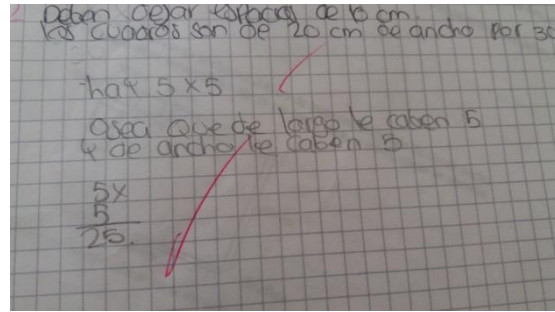 Deben dejar espacios de 6 cm.
Los cuadros son de 20 cm de ancho por 30
hay 5 x 5
Osea que de largo le caben 5
y de ancho le caben 5
5x
5
25.